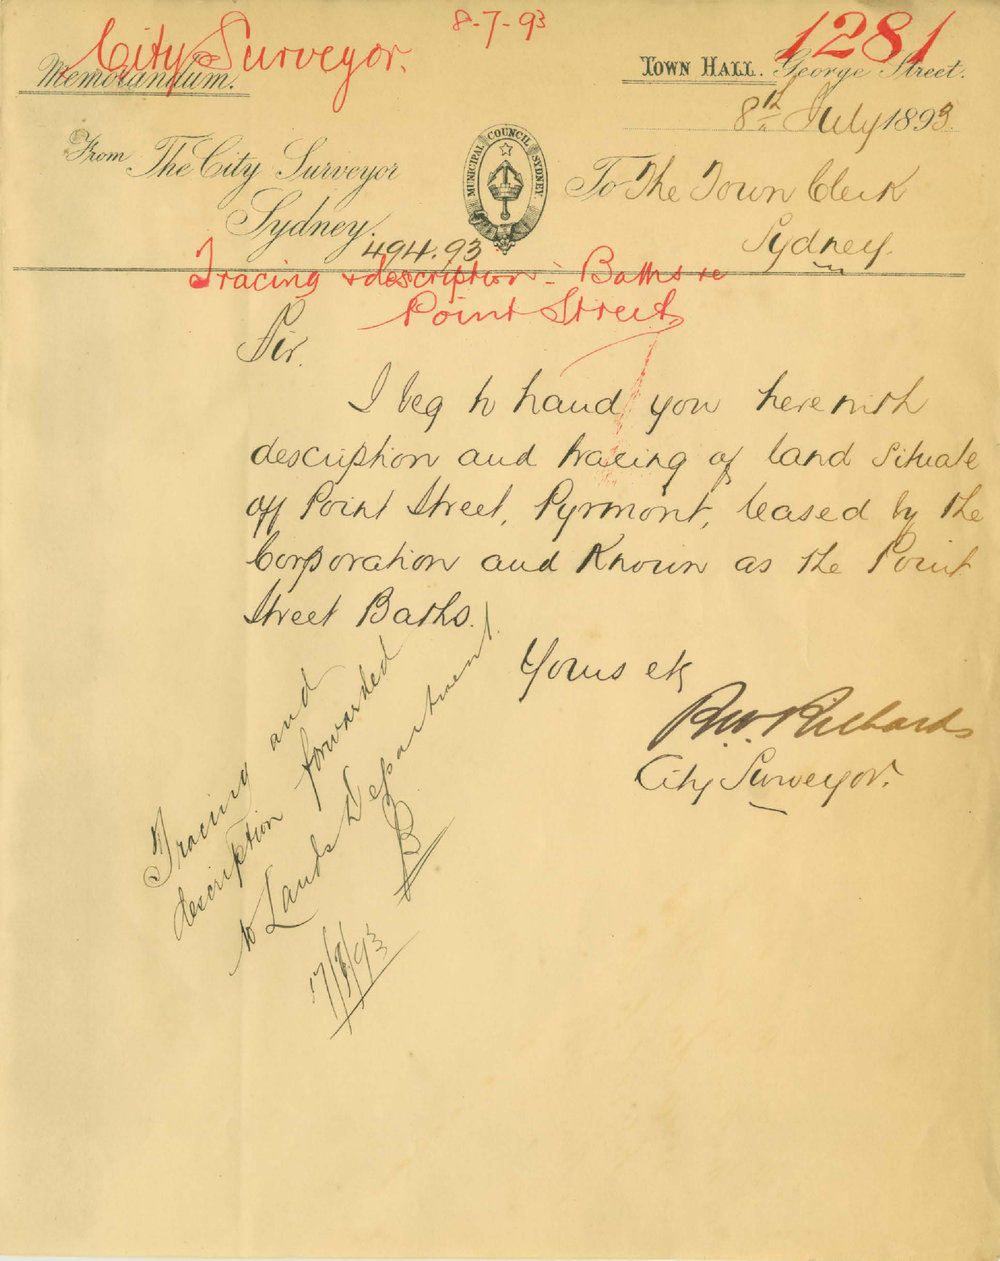 8-7-93
City Surveyor.
1281
Memorandum.
TOWN HALL. George Street.
8th July 1893.
From The City Surveyor
Sydney.
MUNICIPAL COUNCIL SYDNEY
To The Town Clerk
Sydney.
494.93
Tracing & description - Baths re
Point Street
Sir.
I beg to hand you herewith
description and tracing of land situate
off Point Street, Pyrmont, leased by the
Corporation and known as the Point
Street Baths.
Yours etc
R.W. Richards
City Surveyor.
Tracing and
description forwarded
to Lands Department.
B
17/8/93